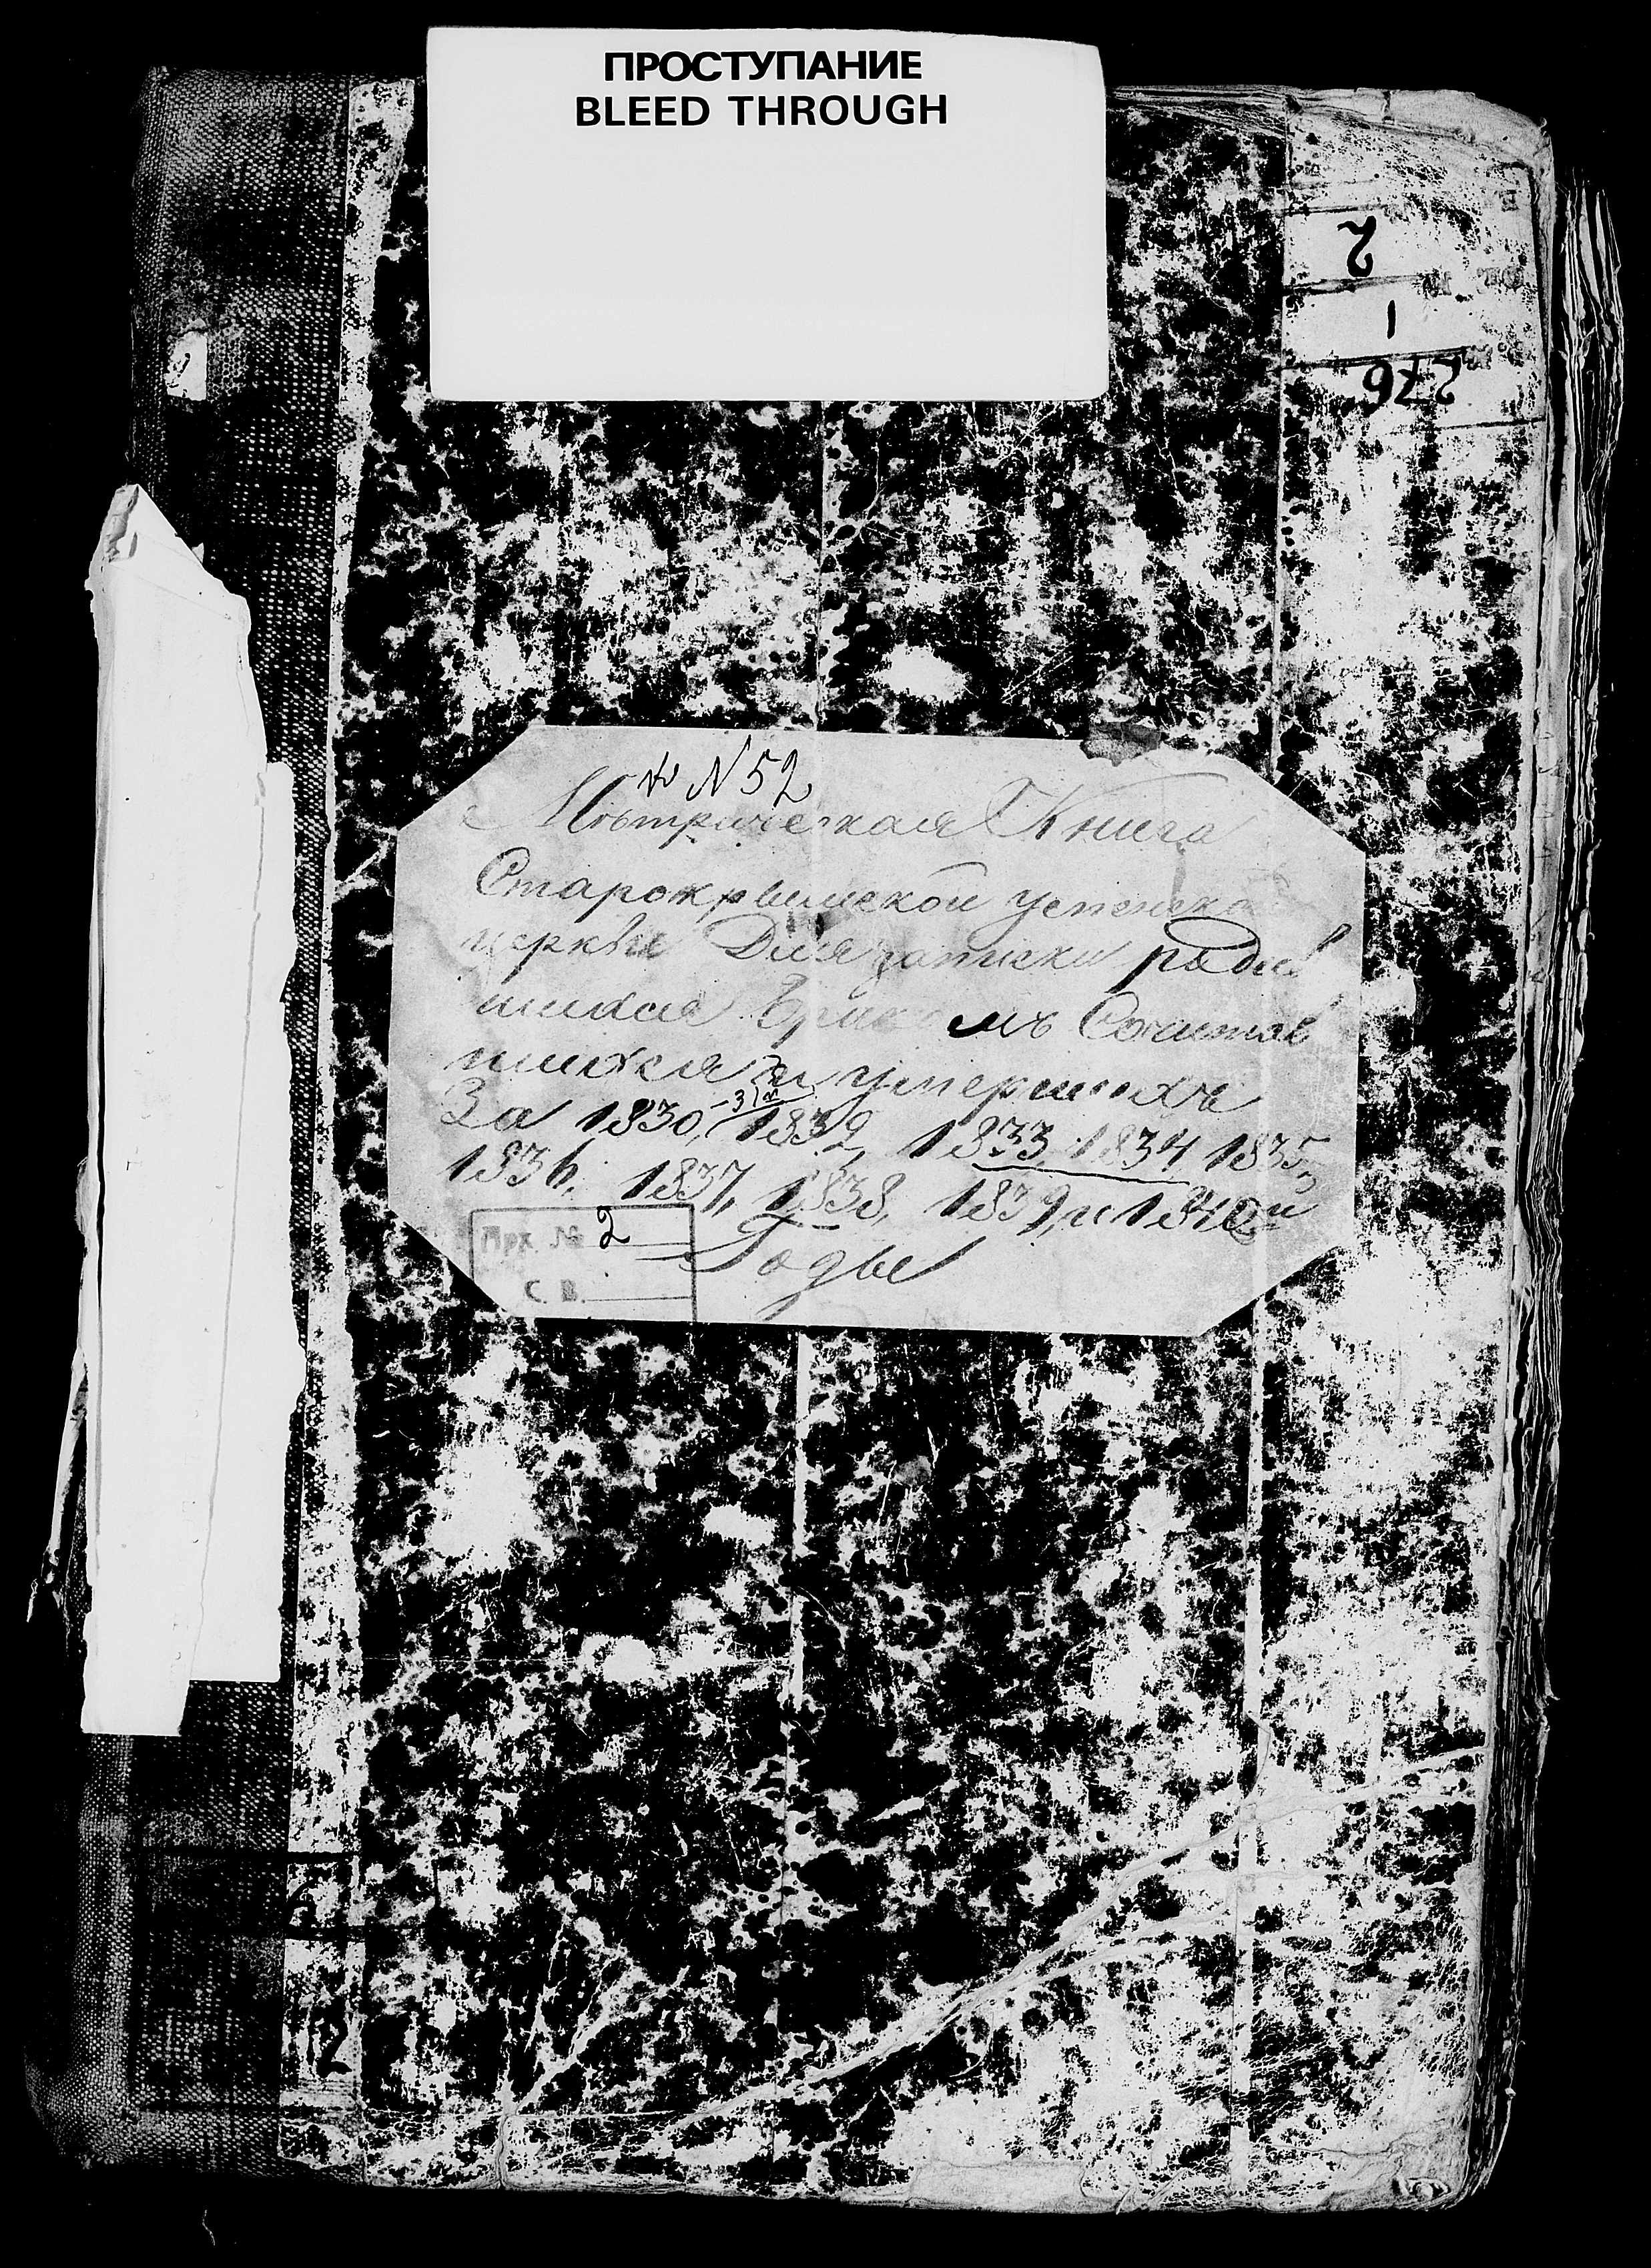 ПРОСТУПАНИЕ
BLEED THROUGH
2
1
276
N 52
Метрическая Книга
Старокрымской успенско
церкви Для записки родив
шихся Браком Сочетав
шихся и умерших
За 1830, -31 1832, 1833, 1834, 1835,
1836, 1837, 1838, 1839, и 1840й
Годы
Арх. № 2
С. В.
2